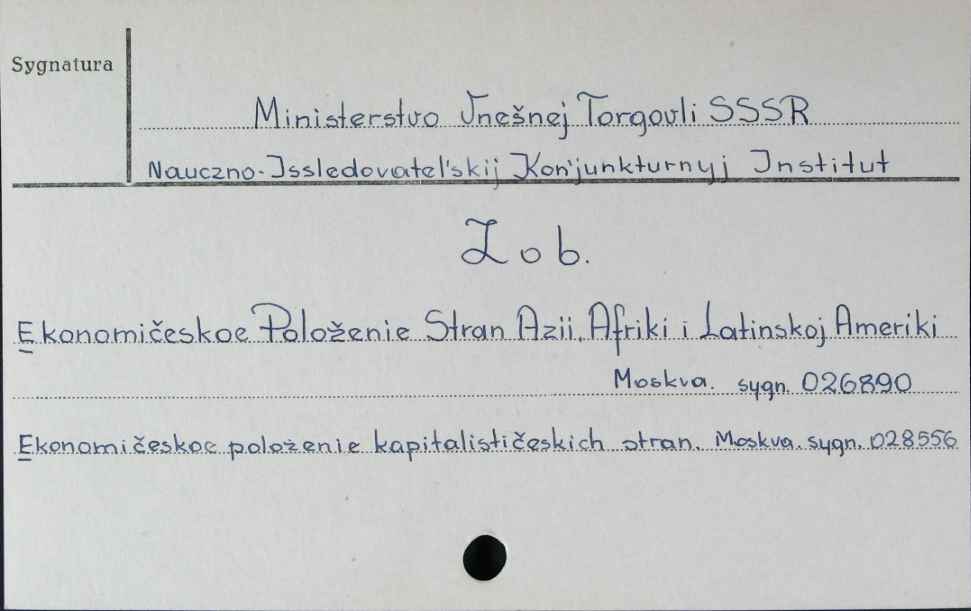 Sygnatura
Ministerstvo Vnešnej Torgovli SSSR
Nauczno-Issledovatel'skij Kon'junkturnyj Institut
Zob.
Ekonomičeskoe Položenie Stran Azii, Afriki i Latinskoj Ameriki
Moskva. sygn. 026890
Ekonomičeskoe położenie kapitalističeskich stran. Moskva. sygn. 028556